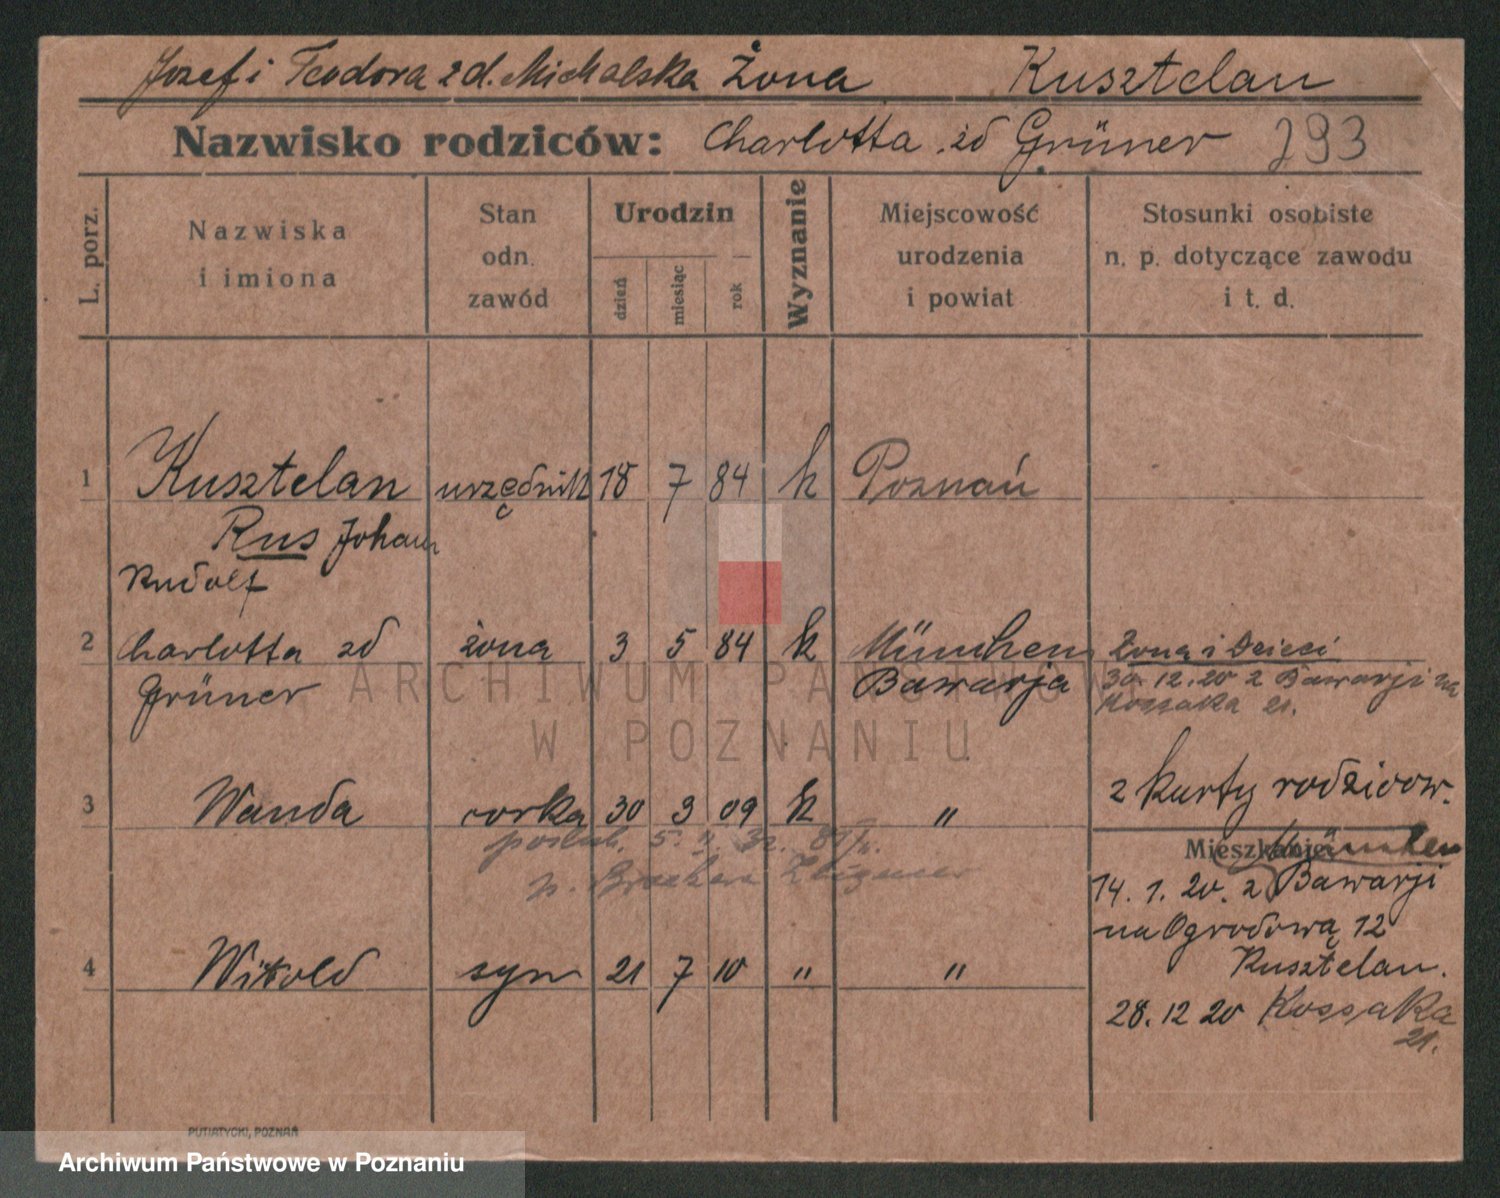 Jozef i Teodora z d. Michalska Żona Kusztelan
Nazwisko rodziców: Charlotta zd Grüner 293
L. porz.
Nazwiska
i imiona
Stan
odn.
zawód
Urodzin
dzień
miesiąc
rok
Wyznanie
Miejscowość
urodzenia
i powiat
Stosunki osobiste
n. p. dotyczące zawodu
i t. d.
1 Kusztelan urzędnik 18 7 84 k Poznań
Rus Johann
Rudolf
2 Charlotta zd żona 3 5 84 k München Żona i Dzieci
Grüner Bawarja 30.12.20 z Bawarji na
Kossaka 21.
z karty rodzicow.
3 Wanda corka 30 3 09 k "
poślub. 5. 32.
p. Zbigniew
Mieszkanie: München
14. 1. 20. z Bawarji
na Ogrodową 12
Kusztelan.
4 Witold syn 21 7 10 " "
28. 12 20 Kossaka
21.
PUTIATYCKI, POZNAŃ
ARCHIWUM PAŃSTWOWE
W POZNANIU
Archiwum Państwowe w Poznaniu